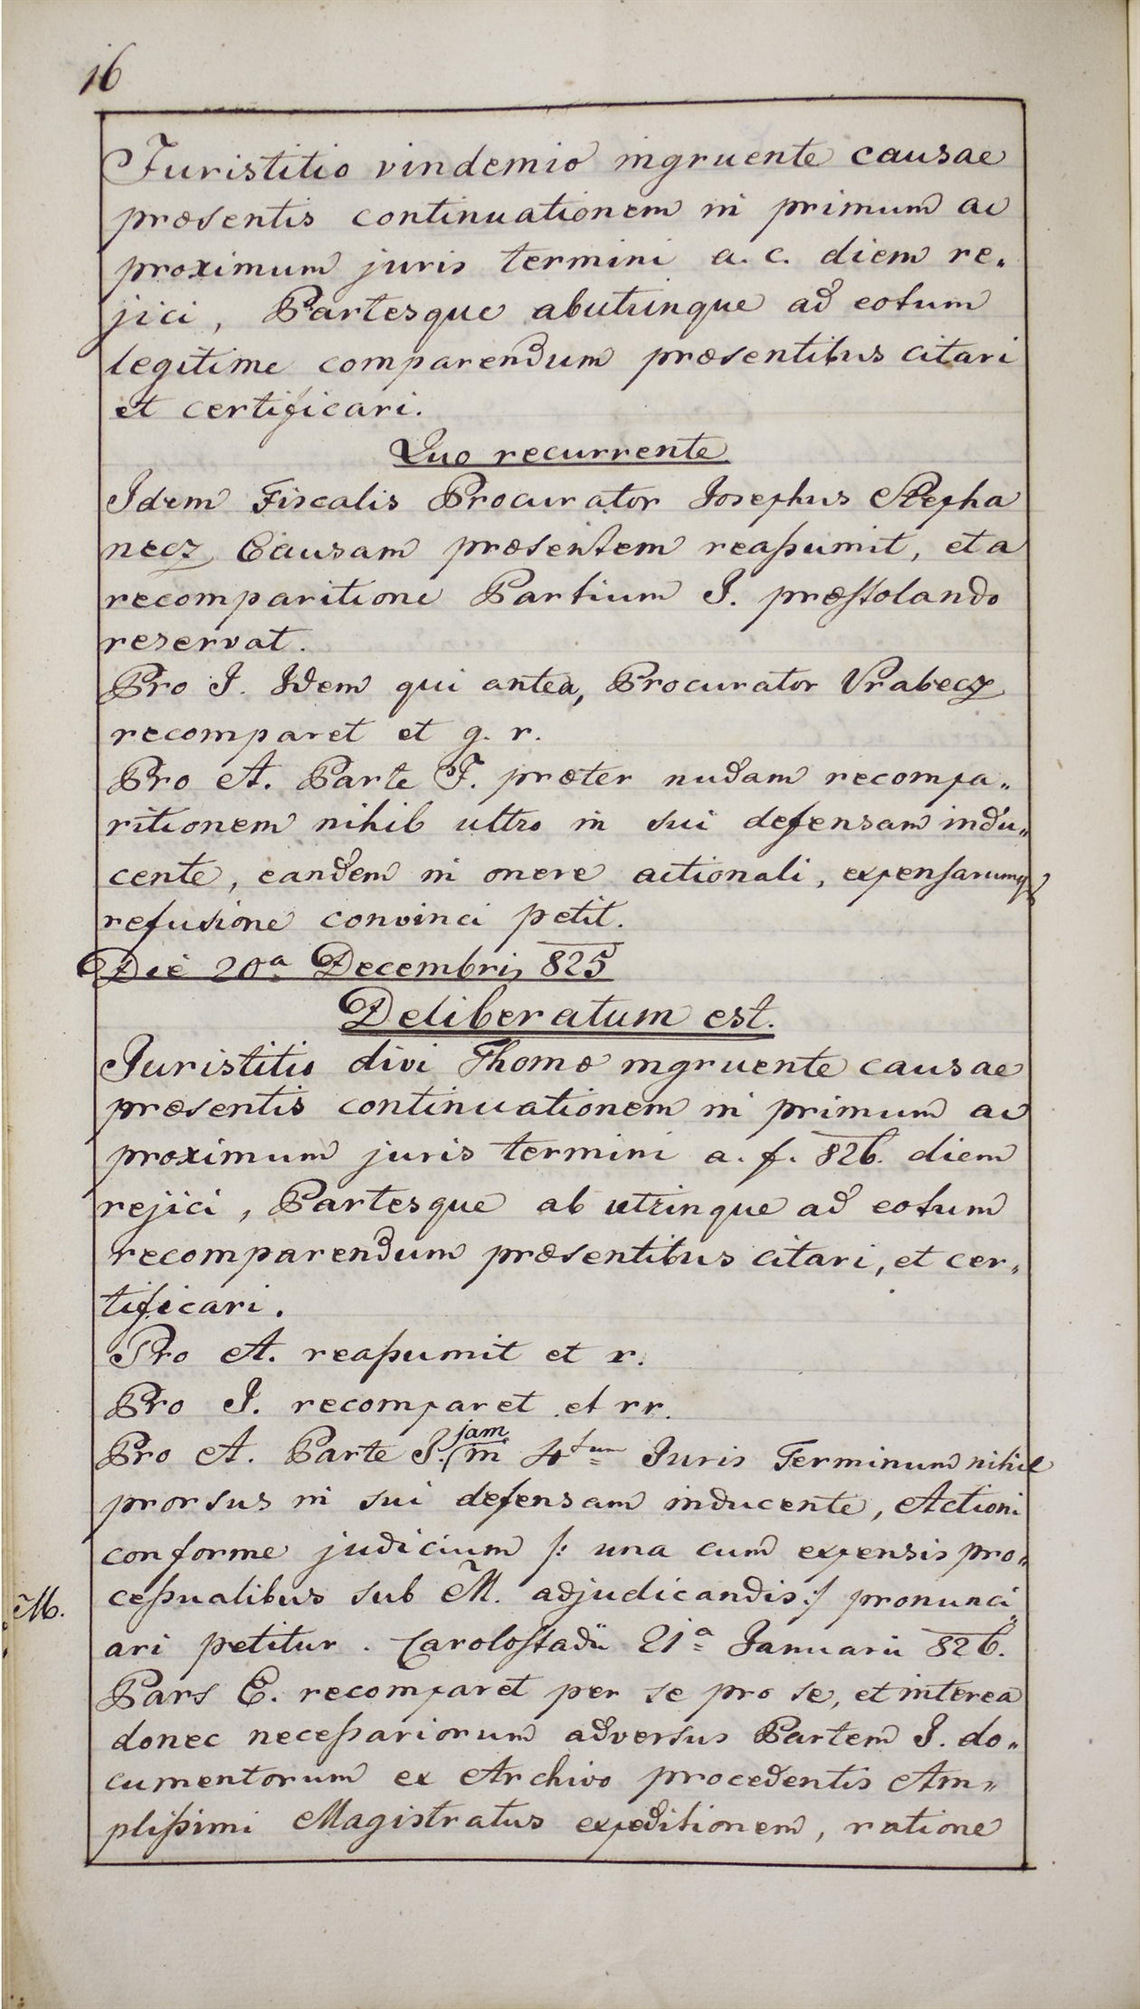 16
Juristitio vindemio ingruente causae
præsentis continuationem in primum ac
proximum juris termini a. c. diem re„
jici, Partesque abutrinque ad eotum
legitime comparendum præsentibus citari
et certificari.
Quo recurrente
Idem Fiscalis Procurator Josephus Stepha
necz Causam præsentem reaſsumit, et a
recomparitione Partium I. præſtolando
reservat.
Pro I. Idem qui antea, Procurator Vrabecz
recomparet et g. r.
Pro A. Parte I. præter nudam recompa„
ritionem nihil ultro in sui defensam indu„
cente, eandem in onere actionali, expenſarumq
refusione convinci petit.
Die 20a Decembris 825
Deliberatum est.
Juristitio divi Thomæ ingruente causae
præsentis continuationem in primum ac
proximum juris termini a. f. 826. diem
rejici, Partesque ab utrinque ad eotum
recomparendum præsentibus citari, et cer„
tificari.
Pro A. reaſsumit et r.
Pro I. recomparet et rr.
jam
Pro A. Parte I. in 4tum Juris Terminum nihil
prorsus in sui defensam inducente, Actioni
conforme judicium /: una cum expensis pro„
ceſsualibus sub M. adjudicandis :/ pronunci„
M.
ari petitur. Caroloſtadii 21a Januarii 826.
Pars E. recomparet per se pro se, et interea
donec neceſsariorum adversus Partem I. do„
cumentorum ex Archivo procedentis Am„
pliſsimi Magistratus expeditionem, ratione